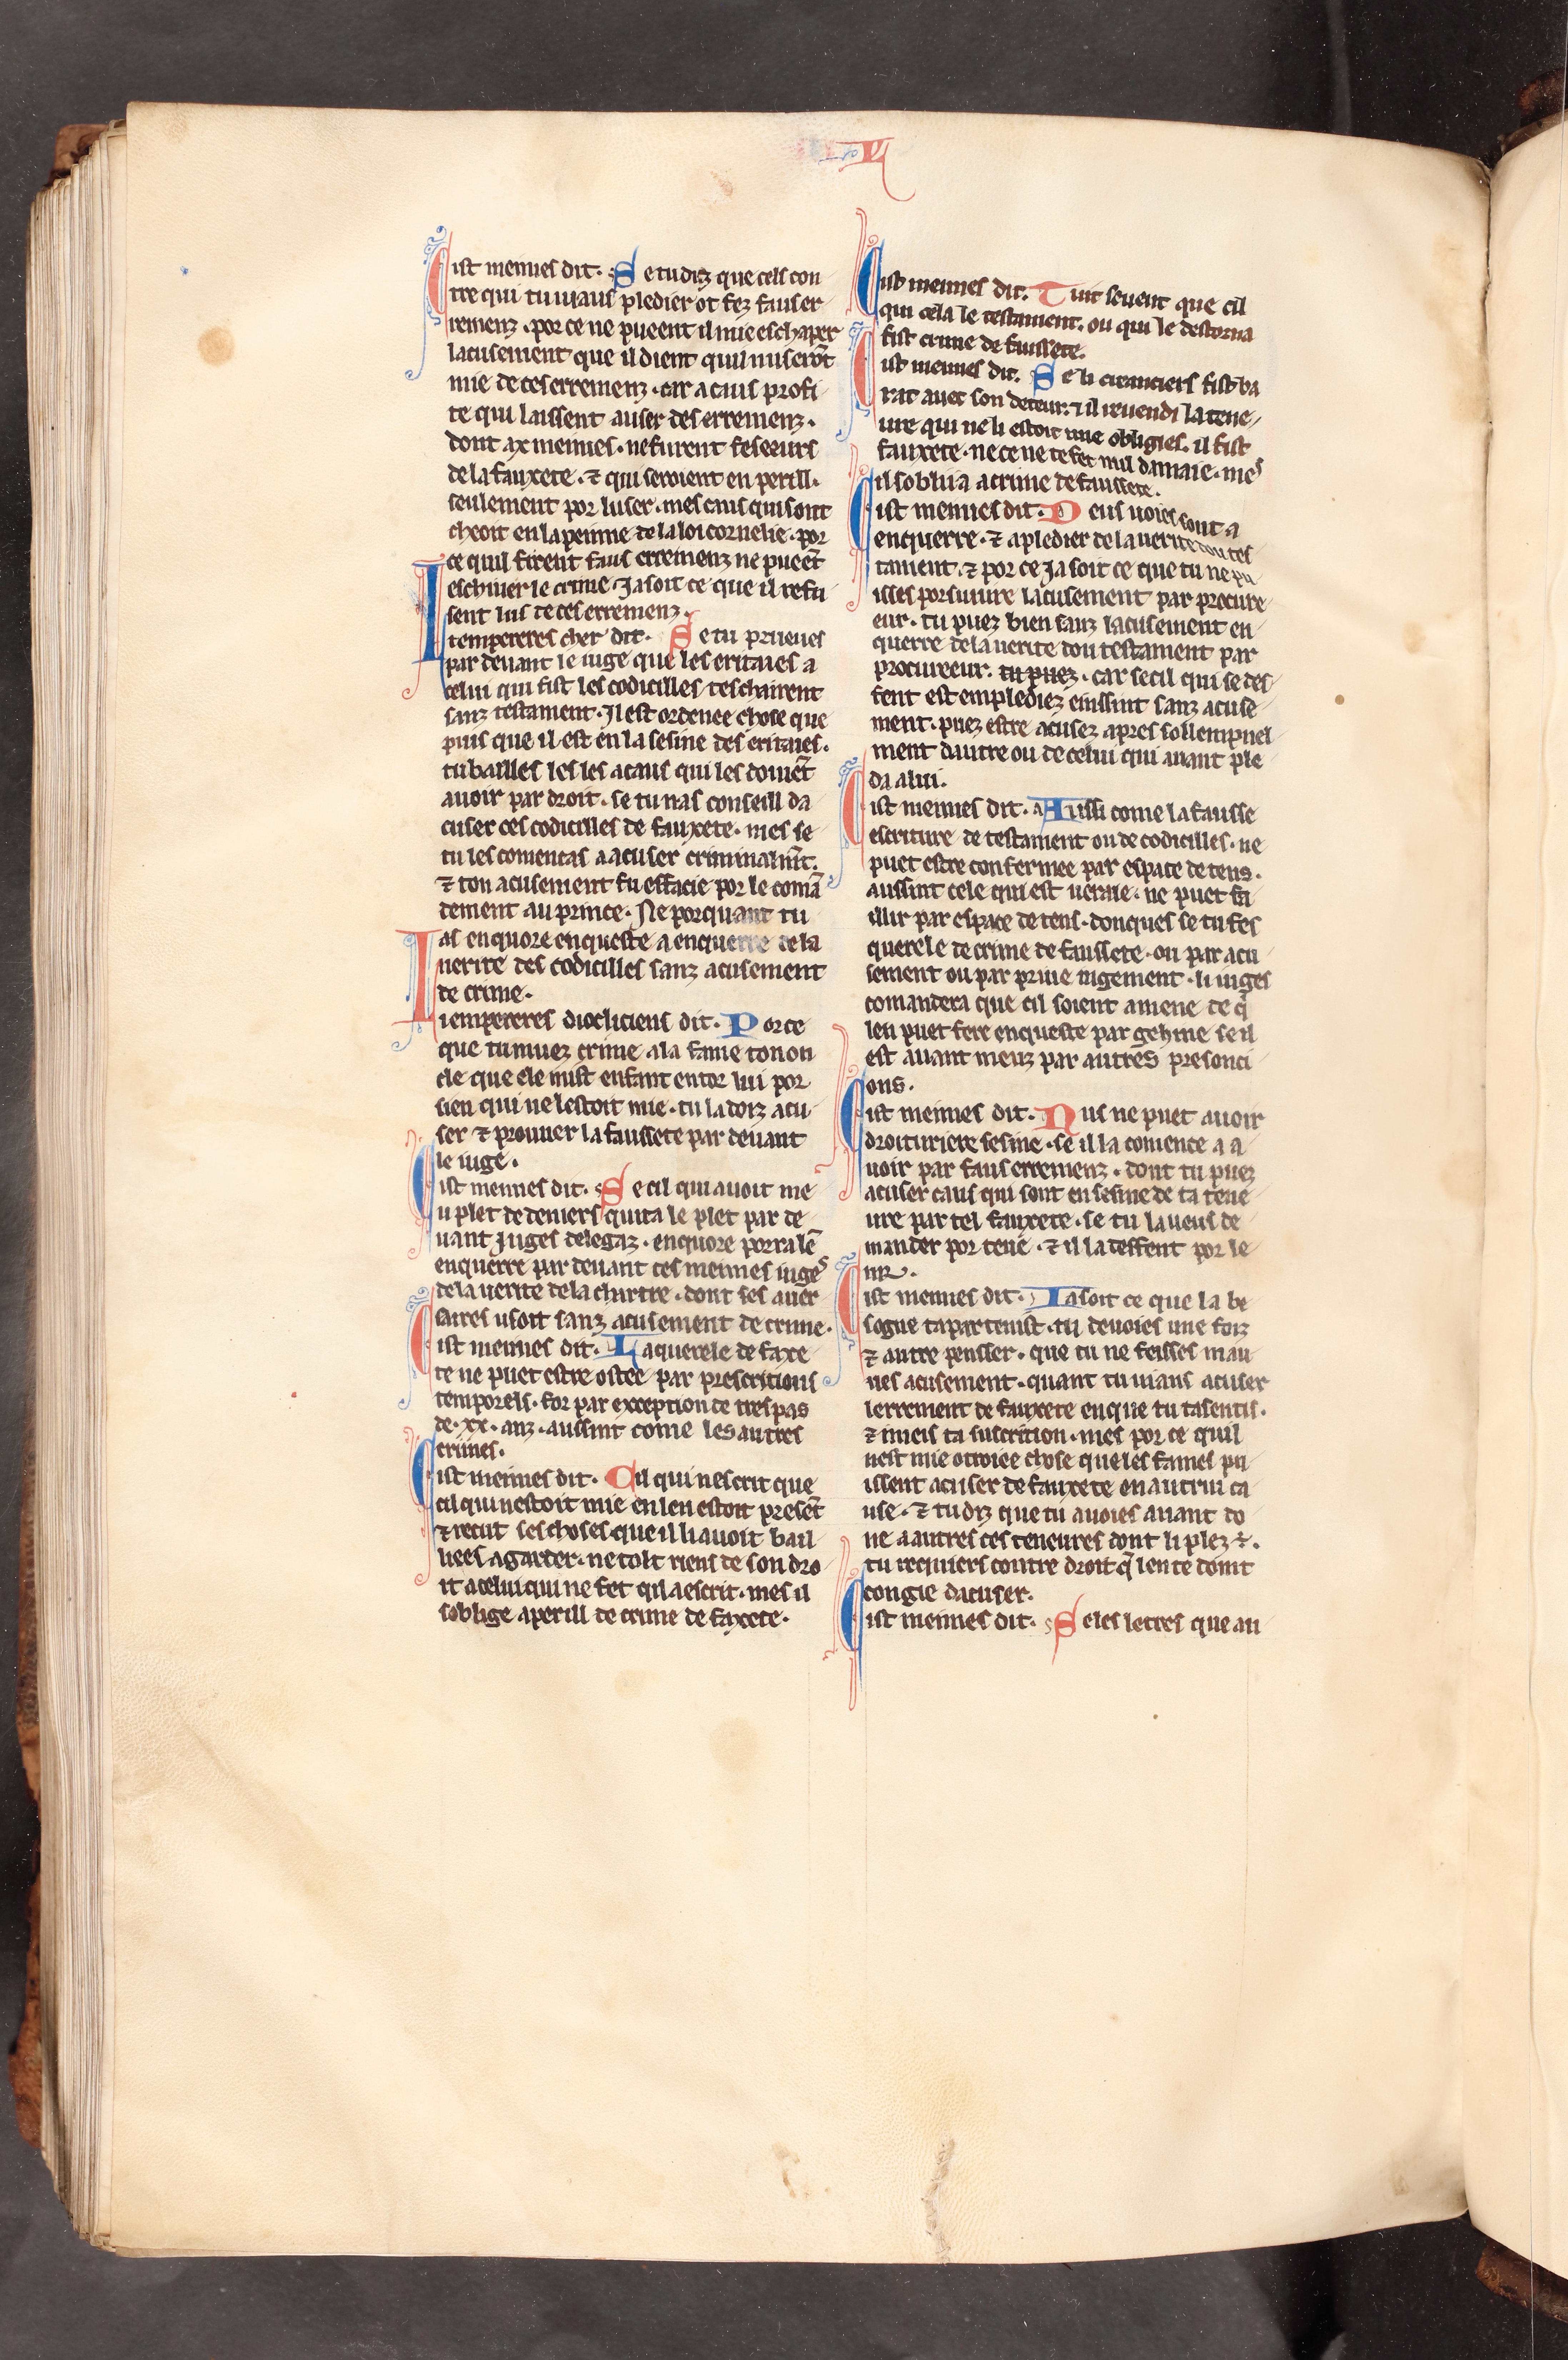 Cist meimes dit. Se tu diz que cels con
tre qui tu viaus pledier ot fez faus er
remenz. por ce ne pueent il mie eschaper
lacusement que il dient quil nuserōt
mie de ces erremenz. car a caus profi
te qui laissent a user des erremenz.
dont ax meimes. ne furent feseeurs
de la fauxete. ⁊ qui seroient en perill.
seulement por luser. mes caus qui sont
cheoit en la peinne de la loi cornelie. por
ce quil firent faus erremenz ne pueēt
eschiver le crime. Ja soit ce que il refu
sent lus de ces erremenz.
Itempereres cher dit. Se tu prueves
par devant le iuge que les eritaies a
celui qui fist les codicilles teschairent
sanz testament. Il est ordenee chose que
puis que il est en la sesine des eritaies.
tu bailles les les a caus qui les doivēt
avoir par droit. se tu nas conseill da
cuser ces codicilles de fauxete. mes se
tu les comencas a acuser criminalmt̄.
⁊ ton acusement fu effacie por le comā
dement au prince. Ne porquant tu
as enquore enqueste a enquerre de la
verite des codicilles sanz acusement
de crime.
Iiempereres diocliciens dit. Por ce
que tu muez crime a la fame ton on
cle que ele mist enfant entor lui por
sien qui ne lestoit mie. tu la doiz acu
ser ⁊ prouver la faussete par devant
le iuge.
Cist meimes dit. Se cil qui avoit me
u plet de deniers quita le plet par de
vant Juges delegaz. enquore porra lē
enquerre par devant ces meimes iuges
de la verite de la chartre. dont ses aver
saires usoit sanz acusement de crime.
Cist meimes dit. La querele de faxe
te ne puet estre ostee par prescritions
temporels. for par exception de trespas
de .xx. anz. aussint come les autres
crimes.
Cist meimes dit. Cil qui nescrit que
cil qui nestoit mie en leu estoit presēt
⁊ recut ses choses que il li avoit bail
liees a garder. ne tolt riens de son dro
it a celui qui ne fet qil a escrit. mes il
soblige a perill de crime de faxete.
V
Cist meimes dit. Tuit sevent que cil
qui cela le testament. ou qui le destorna
fist crime de faussete.
Cist meimes dit. Se li creanciers fist ba
rat avec son deteur. ⁊ il revendi la tene
ure qui ne li estoit mie obligiee. il fist
fauxete. ne ce ne te fet nul damaie. mes
il soblija a crime de faussete.
Cist meimes dit. Deus voies sont a
enquerre. ⁊ a pledier de la verite dou tes
tament. ⁊ por ce Ja soit ce que tu ne pu
isses porsuivre lacusement par procure
eur. tu puez bien sanz lacusement en
querre de la verite dou testament par
procureeur. tu puez. car se cil qui se def
fent est emplediez einssint sanz acuse
ment. puez estre acusez apres sollempnel
ment dautre ou de celui qui avant ple
da a lui.
Cist meimes dit. Aussi come la fausse
escriture de testament ou de codicilles. ne
puet estre confermee par espace de tens.
aussint cele qui est veraie. ne puet fa
illir par espace de tens. donques se tu fes
querele de crime de faussete. ou par acu
sement ou par prive iugement. li iuges
comandera que cil soient amene de q̄
len puet fere enqueste par gehine se il
est avant meuz par autres presonci
ons.
Cist meimes dit. Nus ne puet avoir
droituriere sesine. se il la comence a a
voir par faus erremenz. dont tu puez
acuser caus qui sont en sesine de ta tene
ure par tel fauxete. se tu la veus de
mander por teue. ⁊ il la deffent por le
ur.
Cist meimes dit. Ia soit ce que la be
sogne tapartenist. tu devoies une foiz
⁊ autre pensser. que tu ne feisses mau
ves acusement. quant tu viaus acuser
lerrement de fauxete en que tu tasentis.
⁊ i meis ta suscrition. mes por ce quil
nest mie otroiee chose que les fames pu
issent acuser de fauxete en autrui ca
use. ⁊ tu diz que tu avoies avant do
ne a autres ces teneures dont li plez .ē.
tu requiers contre droit q̄ len te doint
congie dacuser.
Cist meimes dit. Se les letres que au